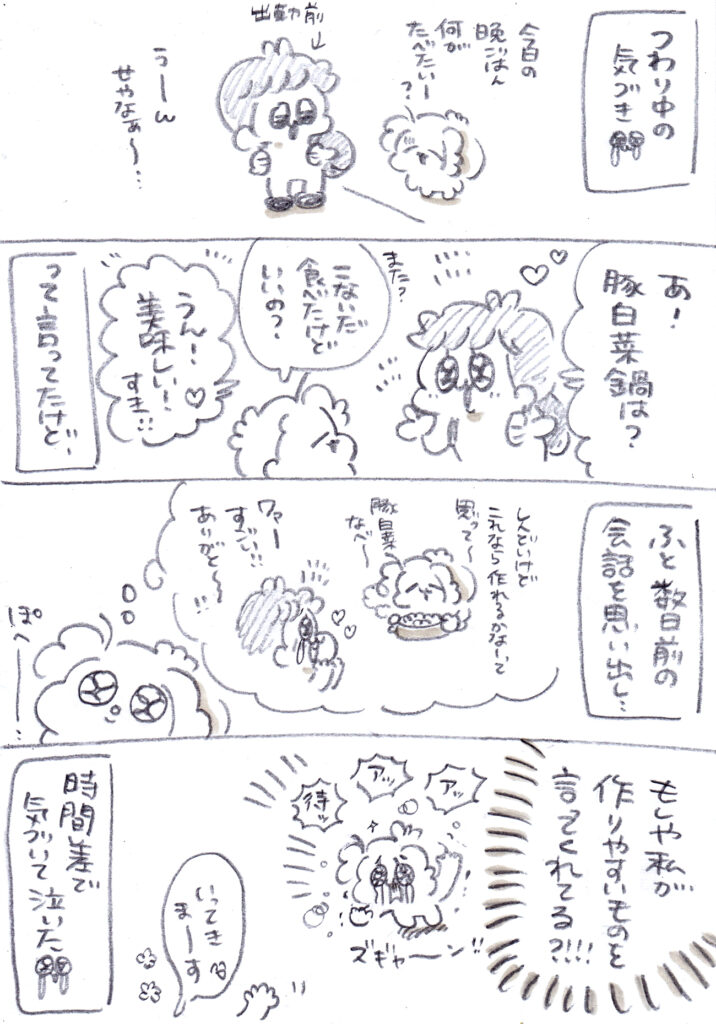 つわり中の
気づき
今日の
晩ごはん
何が
たべたいー
?
出勤前
うーん
せやなぁ〜…
あ!
豚白菜鍋は?
また?
こないだ
食べたけど
いいの?
うん!
美味しい!
すき!!
って言ってたけど…
ふと数日前の
会話を思い出し…
しんどいけど
これなら作れるかなーって
思って〜
豚白菜
なべ〜
ワァー
すごい!!
ありがと〜!!
ぽへー…
もしや私が
作りやすいものを
言ってくれてる?!!!
アッ
アッ
待ッ
ズギャーン!!
いってき
まーす
時間差で
気づいて泣いた